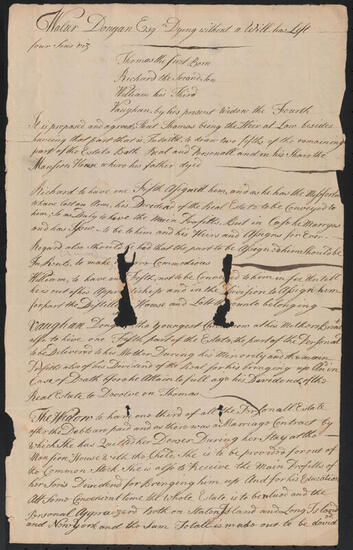 Walter Dongan Esqr Dying without a Will, has Left
four Sons viz
Thomas the first Born
Richard the Second
William his Third
Vaughan, by his present Widow the Fourth
It is proposed and agreed, that Thomas being the Heir at Law besides
having that part that is to draw two fifths of the remaining
part of the Estate Both Real and Personall, and in his Share the
Mansion House where his father dyed
Richard to have one Fifth Assigned him, and as he has the Misfortune
to have lost an Arm, his Dividend of the Real Estate to be Conveyed to
him, so as Only to have the Main Profitts, But in Case he Marrys
and has Issue to be to him and his Heirs and Assigns for Ever
Regard also Should be had that the part to be Assigned him Should be
William, to have Fifth, not to be Conveyed to him
he is out of his Apprenticeship and to Assign him
for part the Distill House and Lott belonging
Vaughan Dong the Youngest
also to have one Fifth part of the Estate, the part of the Personal
to be Delivered to his Mother During his Minority and the main
Profitts also of his Dividend of the Real for his bringing up And in
Case of Death before he Attain to full age his Dividend of the
Real Estate to Devolve on Thomas
The Widow to have one third of all the Personall Estate
after the Debts are paid, and as there was a Marriage Contract by
which She has Quitted her Dower During her Stay at the
Mansion House with the Child She is to be provided for out of
the Common Stock She is also to Receive the Main Profitts of
her Sons Dividend for bringing him up And for his Education
At Some Convenient time the Whole Estate is to be Valued and the
Personal Appraized Both on Staten Island and Long Island
and New York and the Sum Totall is make out to be